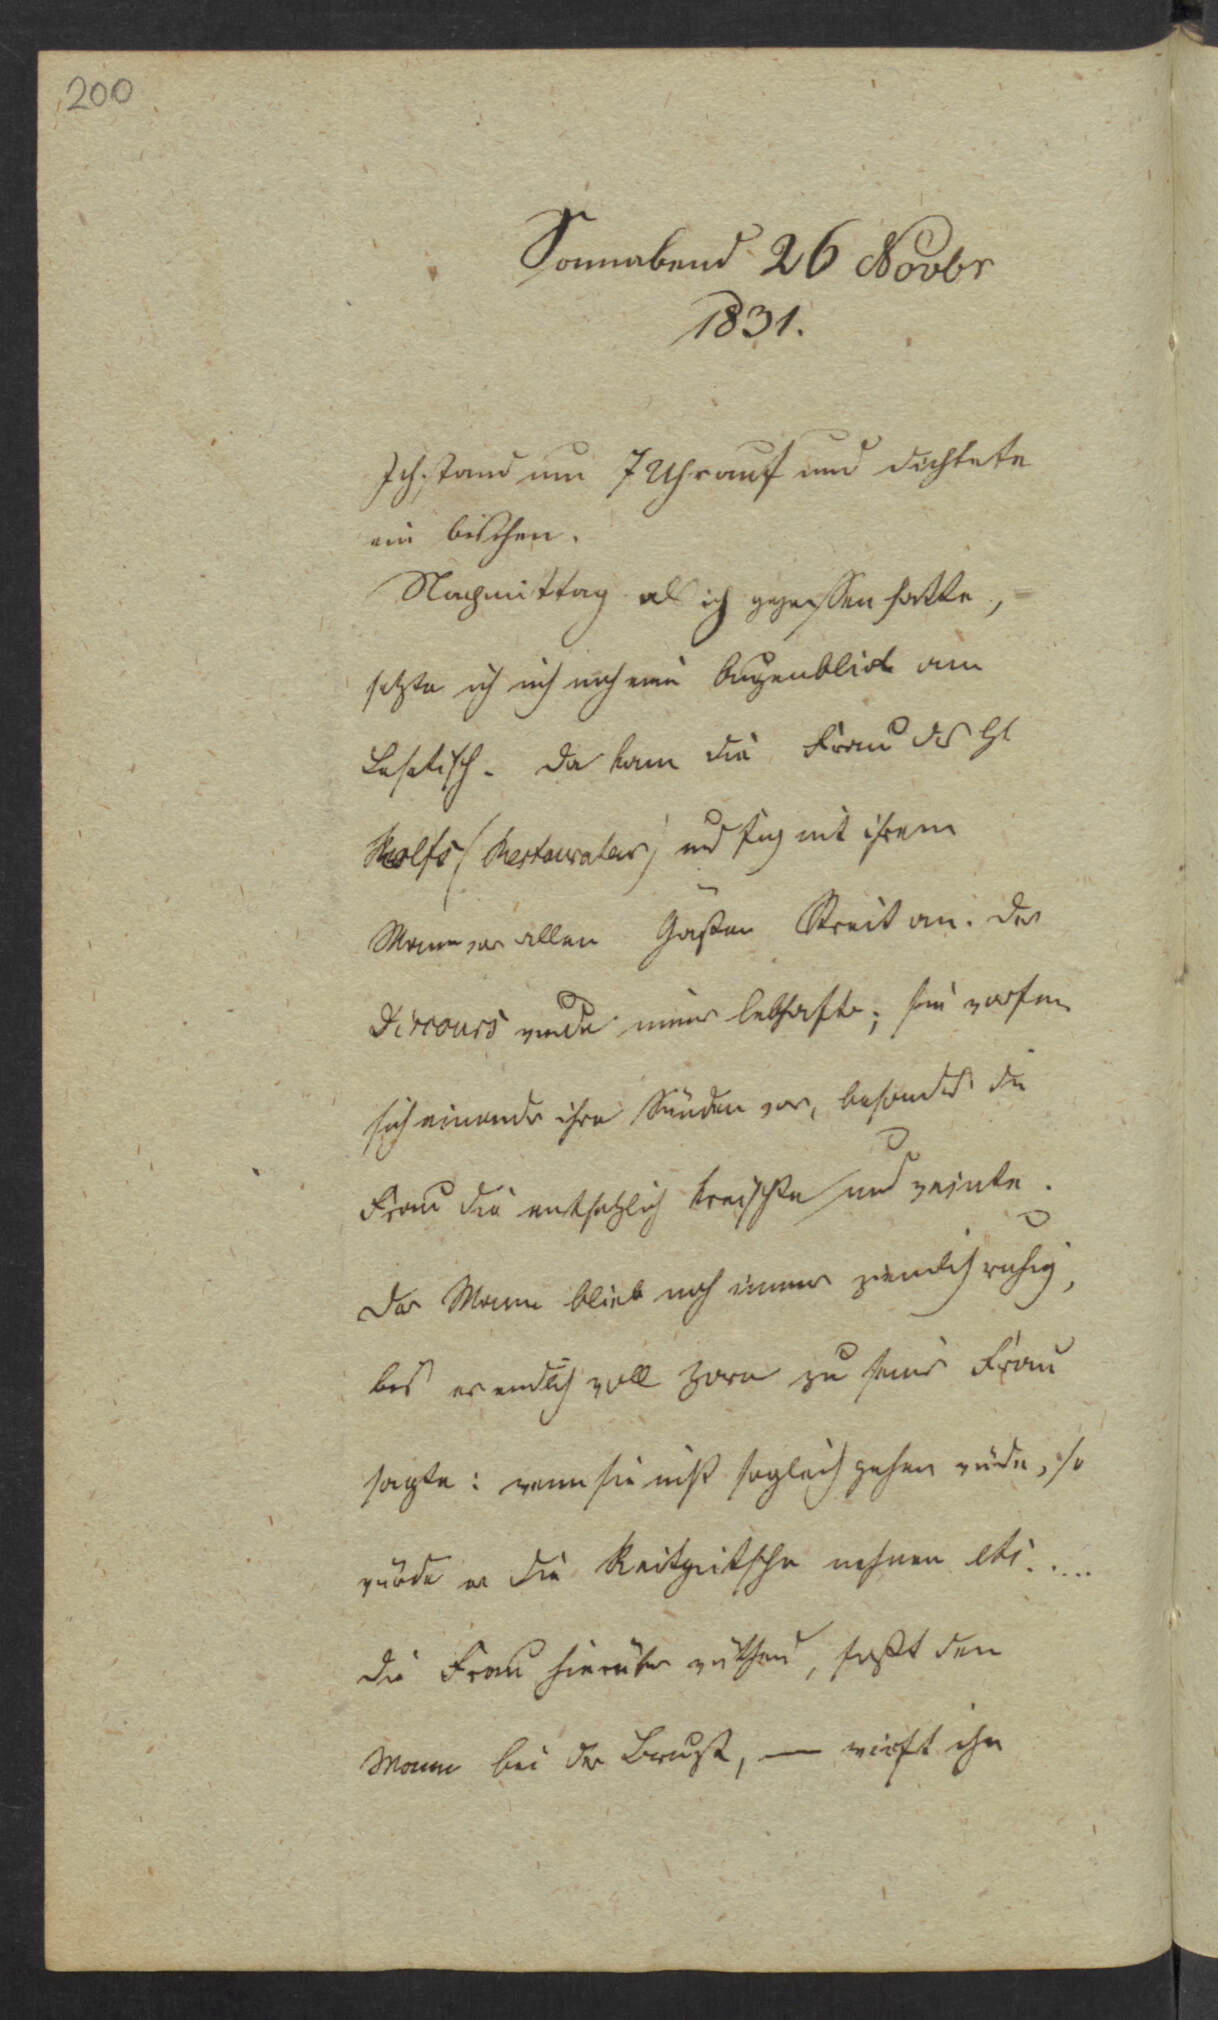 200
Sonnabend 26 Novbr
1831.
Ich stand um 7 Uhr auf und dichtete
ein bischen.
Nachmittag als ich gegessen hatte,
setzte ich mich noch einen Augenblick am
Lesetisch. Da kam die Frau des H
(Restaurateur) und fing mit ihrem
Mann vor allen Gästen Streit an. Der
Discours wurde immer lebhafter; sie warfen
sich einander ihre Sünden vor, besonders die
Frau die entsetzlich kreischte und weinte.
Der Mann blieb noch immer ziemlich ruhig,
bis er endlich voll Zorn zu seiner Frau
sagte: wenn sie nicht sogleich gehen würde, so
würde er die Reitpeitsche nehmen etc. ....
Die Frau hierüber wüthend, faßt den
Mann bei der Brust, — wirft ihn